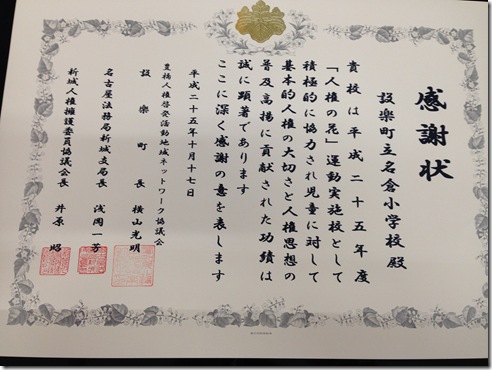 感謝状
設楽町立名倉小学校殿
貴校は平成二十五年度
「人権の花」運動実施校として
積極的に協力され児童に対して
基本的人権の大切さと人権思想の
普及高揚に貢献された功績は
誠に顕著であります
ここに深く感謝の意を表します
平成二十五年十月十七日
豊橋人権啓発活動地域ネットワーク協議会
設楽町長 横山光明
名古屋法務局新城支局長 浅岡一芳
新城人権擁護委員協議会長 井原昭